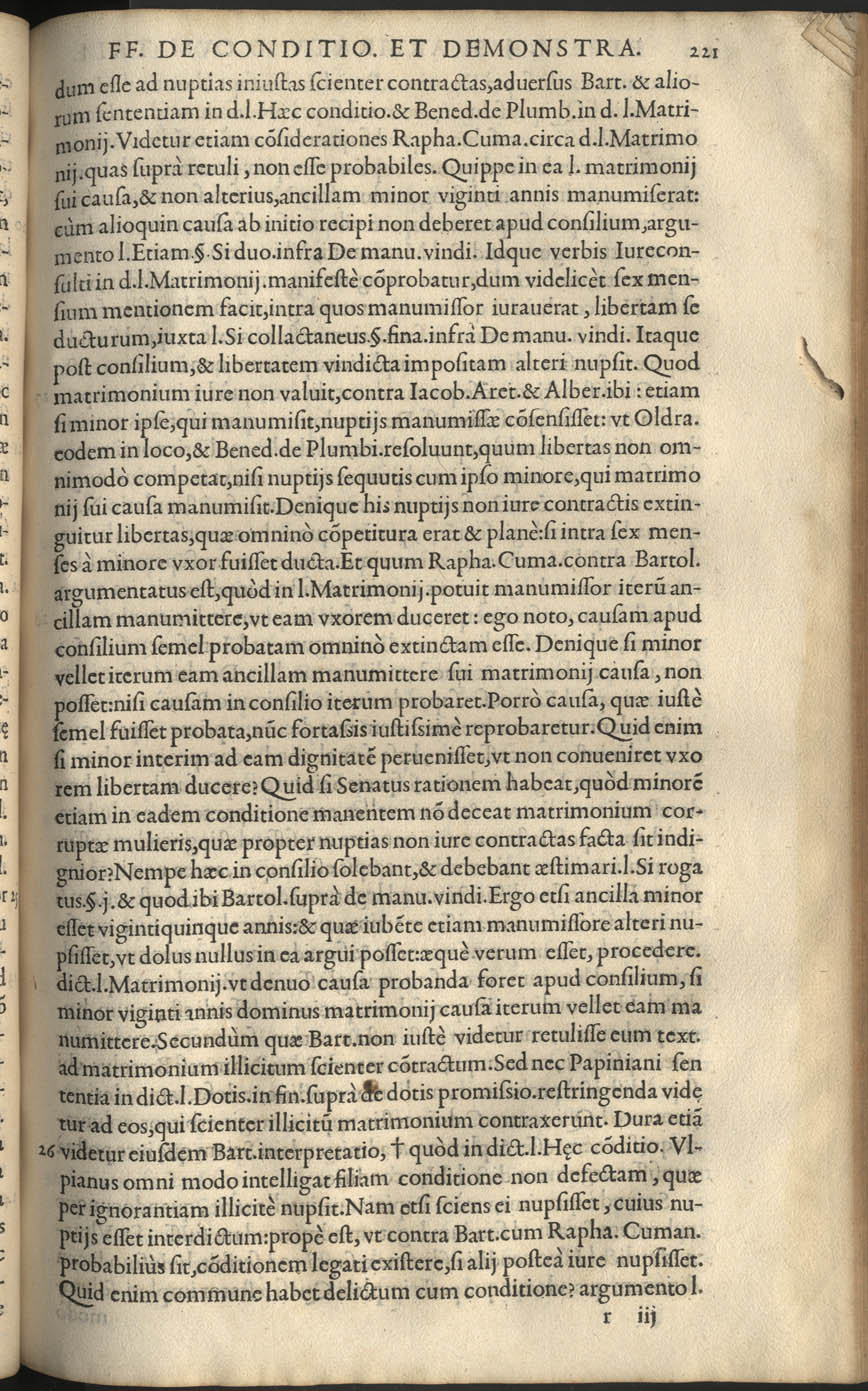 FF. DE CONDITIO. ET DEMONSTRA. 221
dum esse ad nuptias iniustas scienter contractas,aduersus Bart. & alio-
rum sententiam in d.l.Hæc conditio.& Bened.de Plumb.in d. l.Matri-
monij.Videtur etiam cõsiderationes Rapha.Cuma.circa d.l.Matrimo
nij.quas suprà retuli, non esse probabiles. Quippe in ea l. matrimonij
sui causa,& non alterius,ancillam minor viginti annis manumiserat:
cùm alioquin causa ab initio recipi non deberet apud consilium,argu-
mento l.Etiam.§.Si duo.infra De manu.vindi. Idque verbis Iurecon-
sulti in d.l.Matrimonij.manifestè cõprobatur,dum videlicèt sex men-
sium mentionem facit,intra quos manumissor iurauerat, libertam se
ducturum,iuxta l.Si collactaneus.§.fina.infrà De manu. vindi. Itaque
post consilium,& libertatem vindicta impositam alteri nupsit. Quod
matrimonium iure non valuit,contra Iacob.Aret.& Alber.ibi : etiam
si minor ipse,qui manumisit,nuptijs manumissæ cõsensisset: vt Oldra.
eodem in loco,& Bened.de Plumbi.resoluunt,quum libertas non om-
nimodò competat,nisi nuptijs sequutis cum ipso minore,qui matrimo
nij sui causa manumisit.Denique his nuptijs non iure contractis extin-
guitur libertas,quæ omninò cõpetitura erat & planè:si intra sex men-
ses à minore vxor fuisset ducta.Et quum Rapha.Cuma.contra Bartol.
argumentatus est,quòd in l.Matrimonij.potuit manumissor iterũ an-
cillam manumittere,vt eam vxorem duceret : ego noto, causam apud
consilium semel probatam omninò extinctam esse. Denique si minor
vellet iterum eam ancillam manumittere sui matrimonij causa, non
posset:nisi causam in consilio iterum probaret.Porrò causa, quæ iustè
semel fuisset probata,nũc fortassis iustissimè reprobaretur.Quid enim
si minor interim ad eam dignitatẽ peruenisset,vt non conueniret vxo
rem libertam ducere?Quid si Senatus rationem habeat,quòd minorẽ
etiam in eadem conditione manentem nõ deceat matrimonium cor-
ruptæ mulieris,quæ propter nuptias non iure contractas facta sit indi-
gnior?Nempe hæc in consilio solebant,& debebant æstimari.l.Si roga
tus.§.j.& quod ibi Bartol.suprà de manu.vindi.Ergo etsi ancilla minor
esset vigintiquinque annis:& quæ iubẽte etiam manumissore alteri nu-
psisset,vt dolus nullus in ea argui posset:æquè verum esset, procedere.
dict.l.Matrimonij.vt denuo causa probanda foret apud consilium, si
minor viginti annis dominus matrimonij causa iterum vellet eam ma
numittere.Secundùm quæ Bart.non iustè videtur retulisse eum text.
ad matrimonium illicitum scienter cõtractum:Sed nec Papiniani sen
tentia in dict.l.Dotis.in fin.suprà de dotis promissio.restringenda vidę
tur ad eos,qui scienter illicitũ matrimonium contraxerunt. Dura etiã
26 videtur eiusdem Bart.interpretatio, † quòd in dict.l.Hęc cõditio. Vl-
pianus omni modo intelligat filiam conditione non defectam, quæ
per ignorantiam illicitè nupsit.Nam etsi sciens ei nupsisset, cuius nu-
ptijs esset interdictum:propè est, vt contra Bart.cum Rapha. Cuman.
probabiliùs sit,cõditionem legati existere,si alij posteà iure nupsisset.
Quid enim commune habet delictum cum conditione? argumento l.
r iij